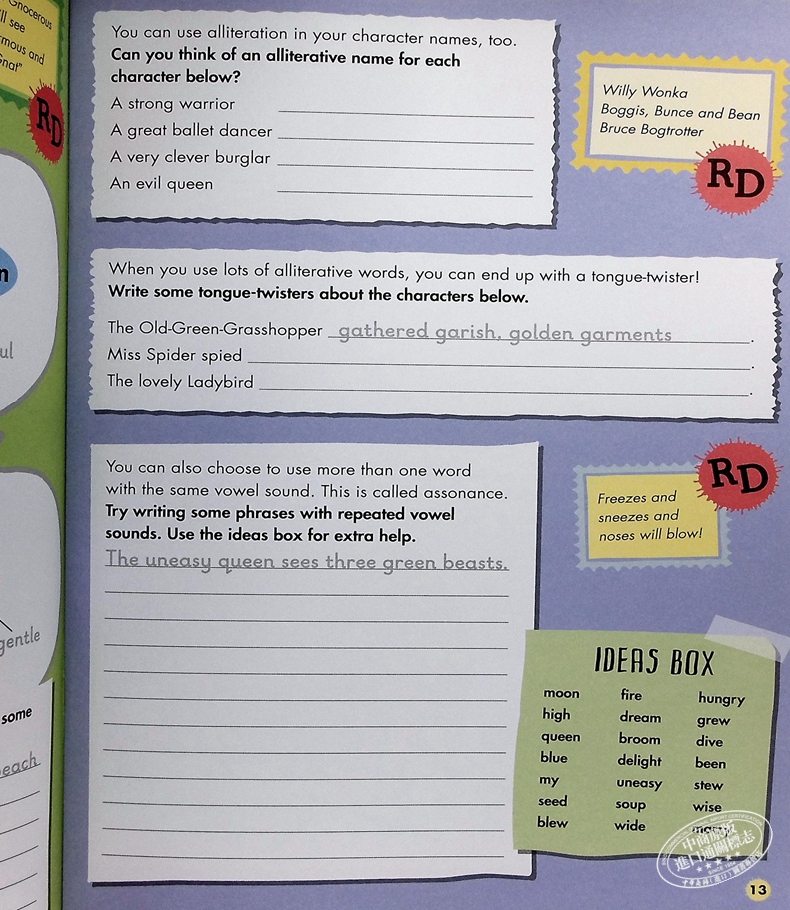 Gnocerous
ll see
rmous and
Gnat"
RD
n
ul
gentle
some
each
You can use alliteration in your character names, too.
Can you think of an alliterative name for each
character below?
A strong warrior
A great ballet dancer
A very clever burglar
An evil queen
Willy Wonka
Boggis, Bunce and Bean
Bruce Bogtrotter
RD
When you use lots of alliterative words, you can end up with a tongue-twister!
Write some tongue-twisters about the characters below.
The Old-Green-Grasshopper gathered garish, golden garments.
Miss Spider spied .
The lovely Ladybird .
You can also choose to use more than one word
with the same vowel sound. This is called assonance.
Try writing some phrases with repeated vowel
sounds. Use the ideas box for extra help.
The uneasy queen sees three green beasts.
RD
Freezes and
sneezes and
noses will blow!
IDEAS BOX
moon fire hungry
high dream grew
queen broom dive
blue delight been
my uneasy stew
seed soup wise
blew wide
中商原版
進口通關標誌
13